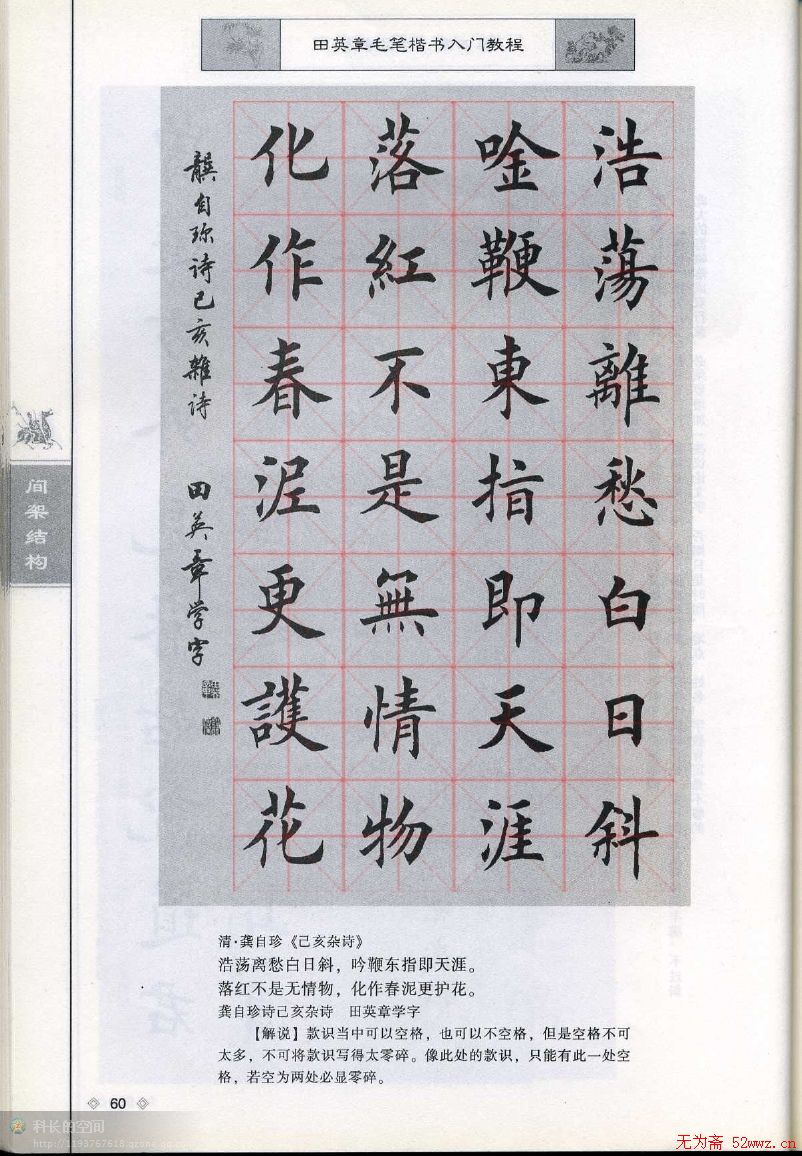 田英章毛笔楷书入门教程
浩蕩離愁白日斜
唫鞭東指即天涯
落紅不是無情物
化作春泥更護花
龔自珍诗己亥雜诗 田英章学字
间架结构
清·龚自珍《己亥杂诗》
浩荡离愁白日斜，吟鞭东指即天涯。
落红不是无情物，化作春泥更护花。
龚自珍诗己亥杂诗 田英章学字
【解说】款识当中可以空格，也可以不空格，但是空格不可
太多，不可将款识写得太零碎。像此处的款识，只能有此一处空
格，若空为两处必显零碎。
60
科长的空间
http://1193767618.qzone.qq.
无为斋 52wwz.cn